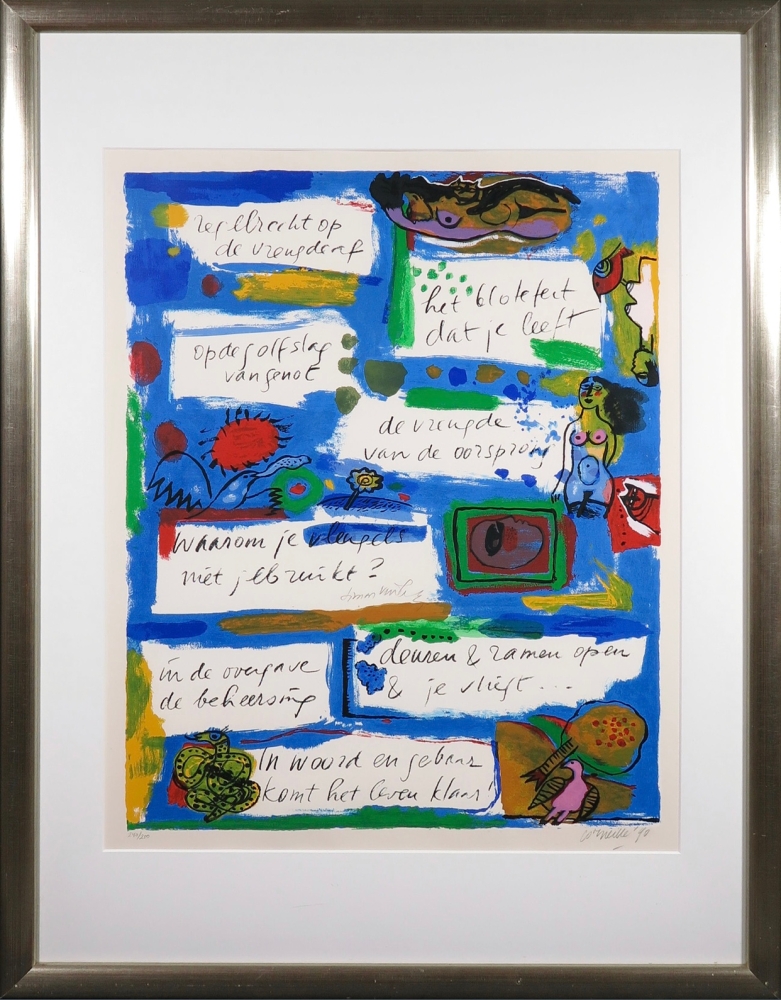 regelrecht op
de vreugde af
het blote feit
dat je leeft
op de golfslag
van genot
de vreugde
van de oorsprong
waarom je vleugels
niet gebruikt?
in de overgave
de beheersing
deuren & ramen open
& je vliegt...
In woord en gebaar
komt het leven klaar!
Corneille '90